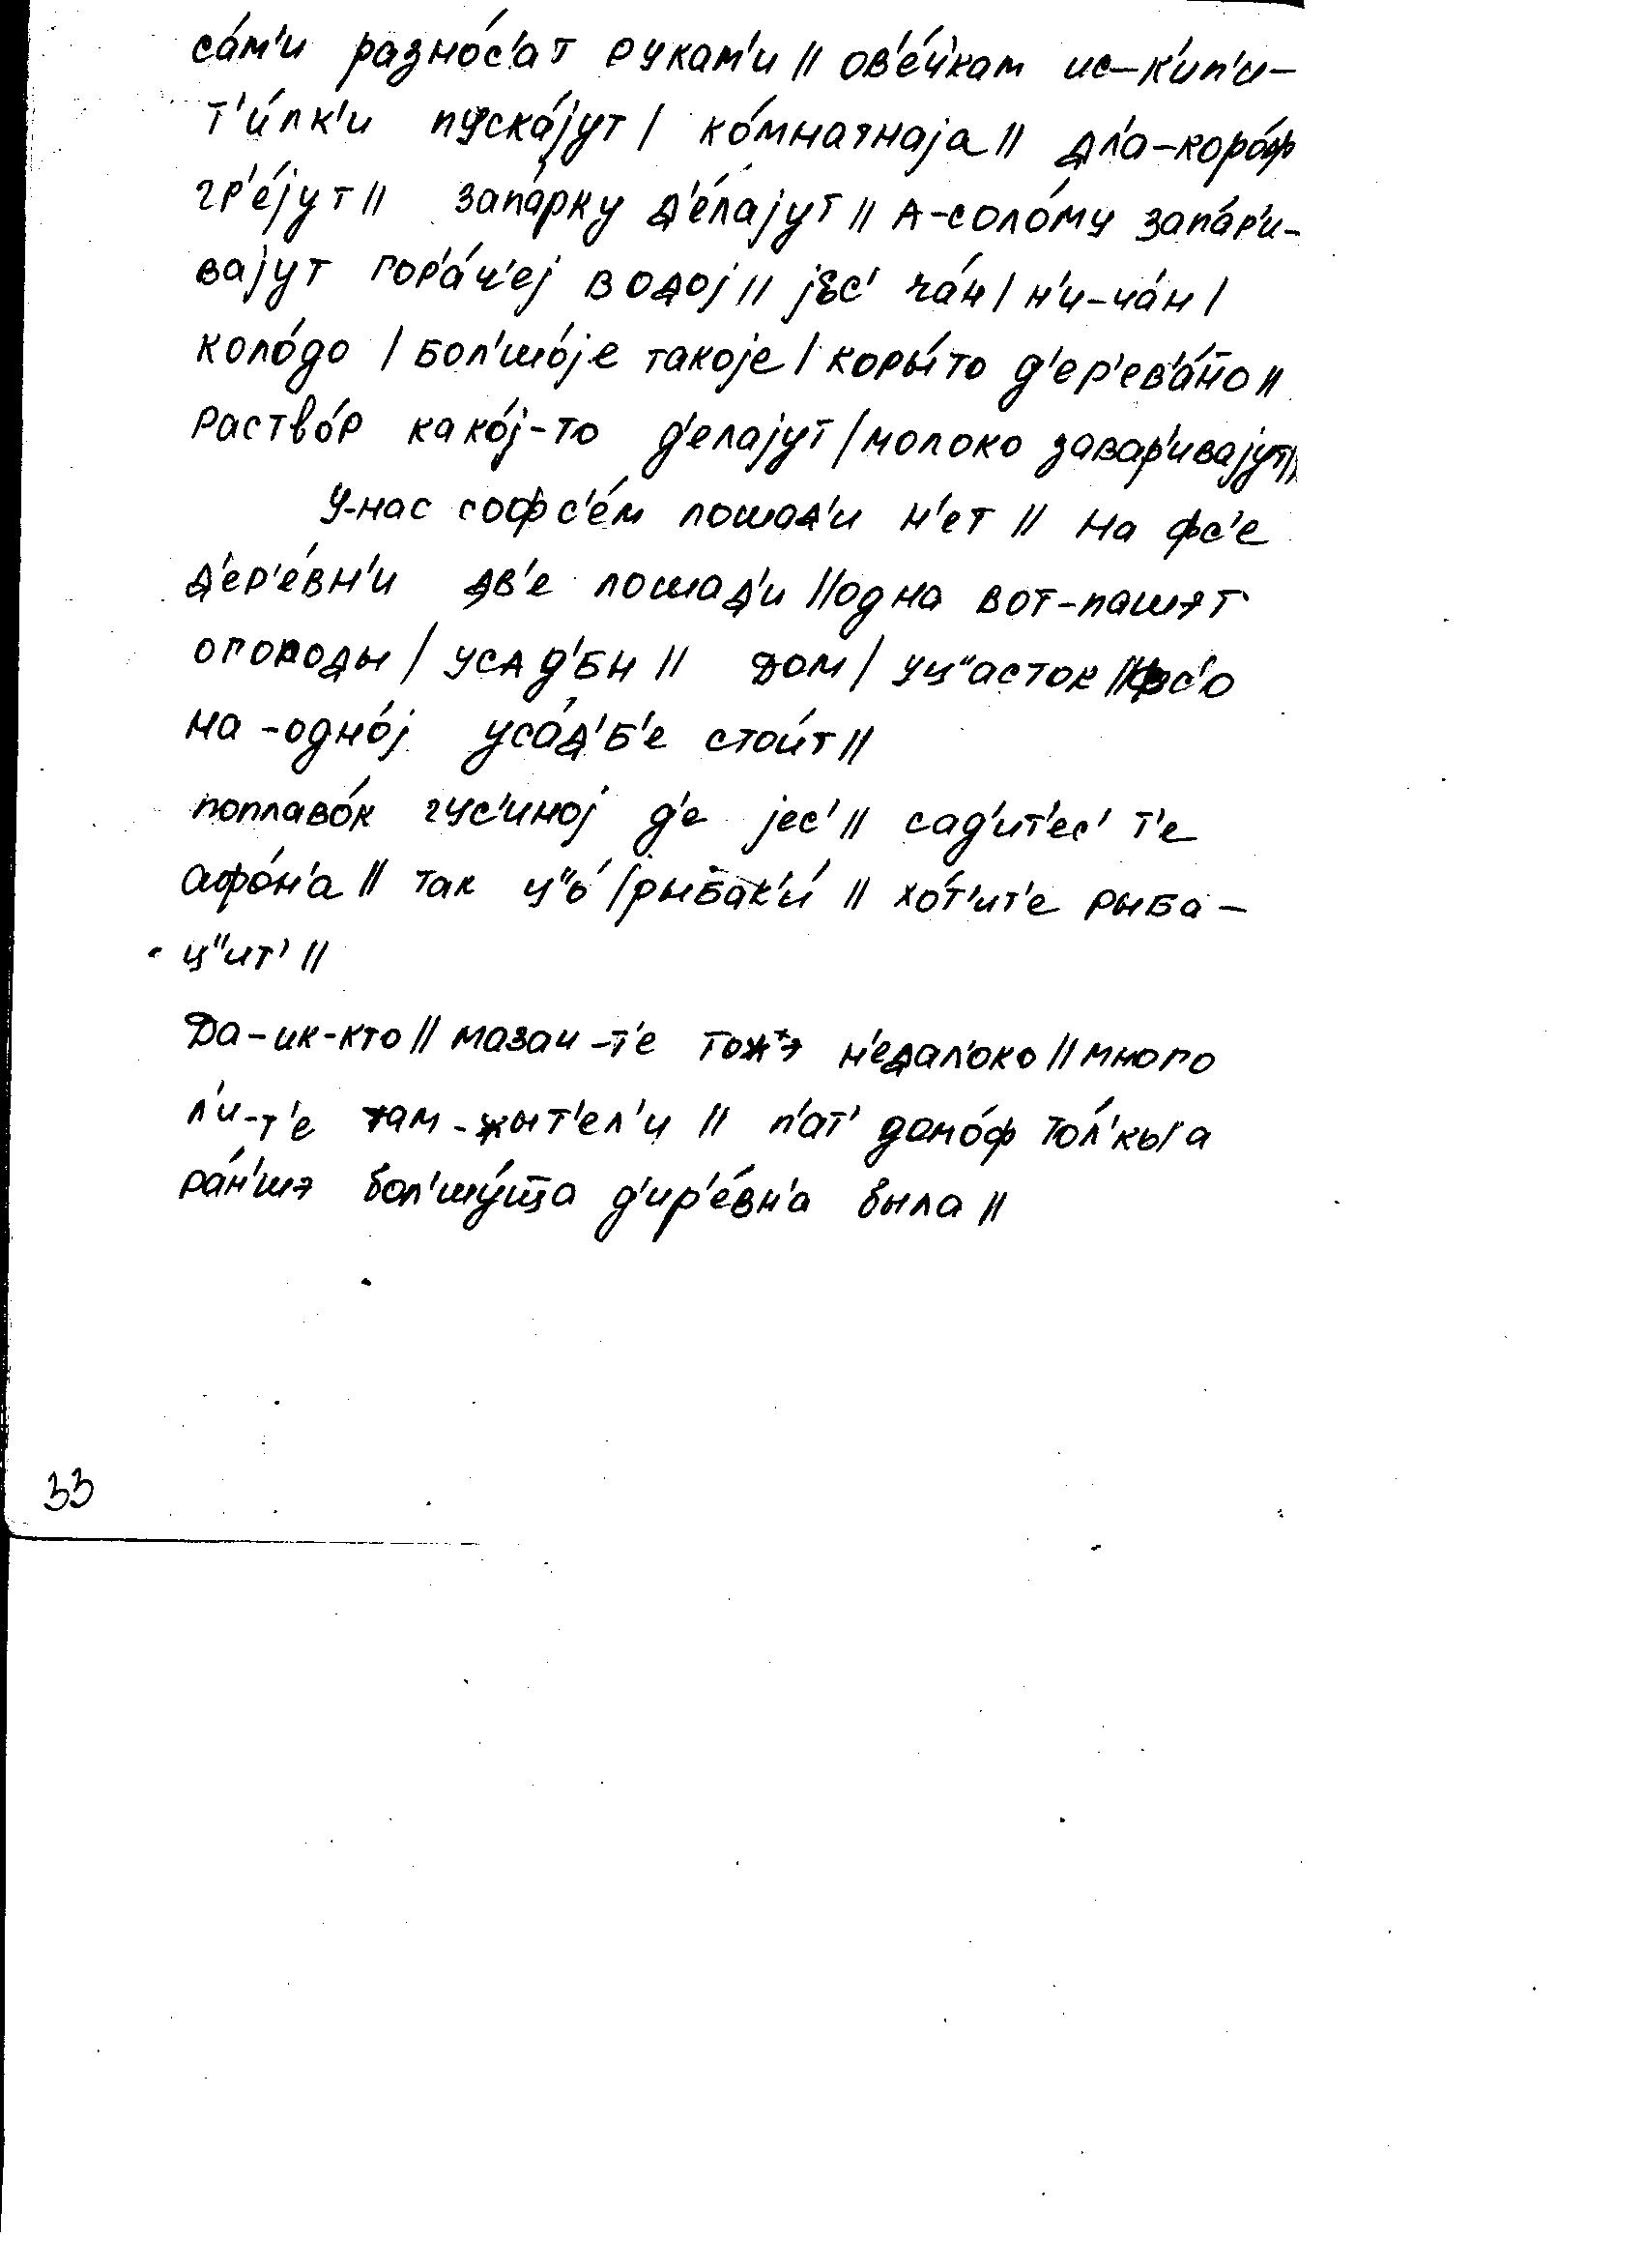 са́м'и разно́с'ат рукам'и // ов'е́чкам ис-к'ип'и-
т'и́лк'и пуска́jут / ко́мнатнаjа // дл'а-коро́ф
гр'е́jут // запа́рку д'е́лаjут // А-соло́му запа́р'и-
ваjут гор'а́ч'еj водоj // jес' ча́н / н'и-ча́н /
коло́до / бол'шо́jе такоjе / коры́то д'ер'ев'а́но //
раство́р како́j-то д'елаjут / молоко завар'иваjут //
У-нас софс'е́м лошад'и н'ет // на фс'е
д'ер'е́вн'и дв'е лошад'и // одна вот-пашэт
огороды / усад'бы // дом / уц"асток // фс'о
на-одно́j уса́д'б'е стои́т //
поплаво́к гус'иноj д'е jес' // сад'ит'ес' т'е
афо́н'а // так ц"о́ / рыбак'и́ // хо́т'ит'е рыба-
ц"ит' //
Да-ик-кто // мазаи-т'е тожэ н'едал'око // много
л'и-т'е там-жыт'ел'и // п'ат' домо́ф то́л'кы а
ра́н'шэ бол'шу́ща д'ир'е́вн'а была //
33